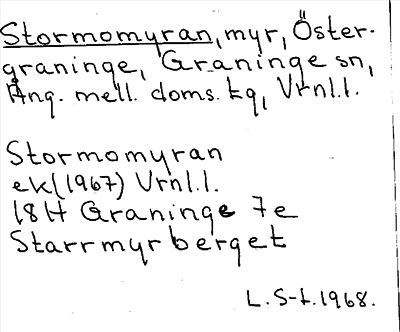 Stormomyran, myr, Öster-
graninge, Graninge sn,
Ång. mell. doms. tg, Vrnl.l.
Stormomyran
ek (1967) Vrnl.l.
18H Graninge 7e
Starrmyrberget
L. S-t. 1968.